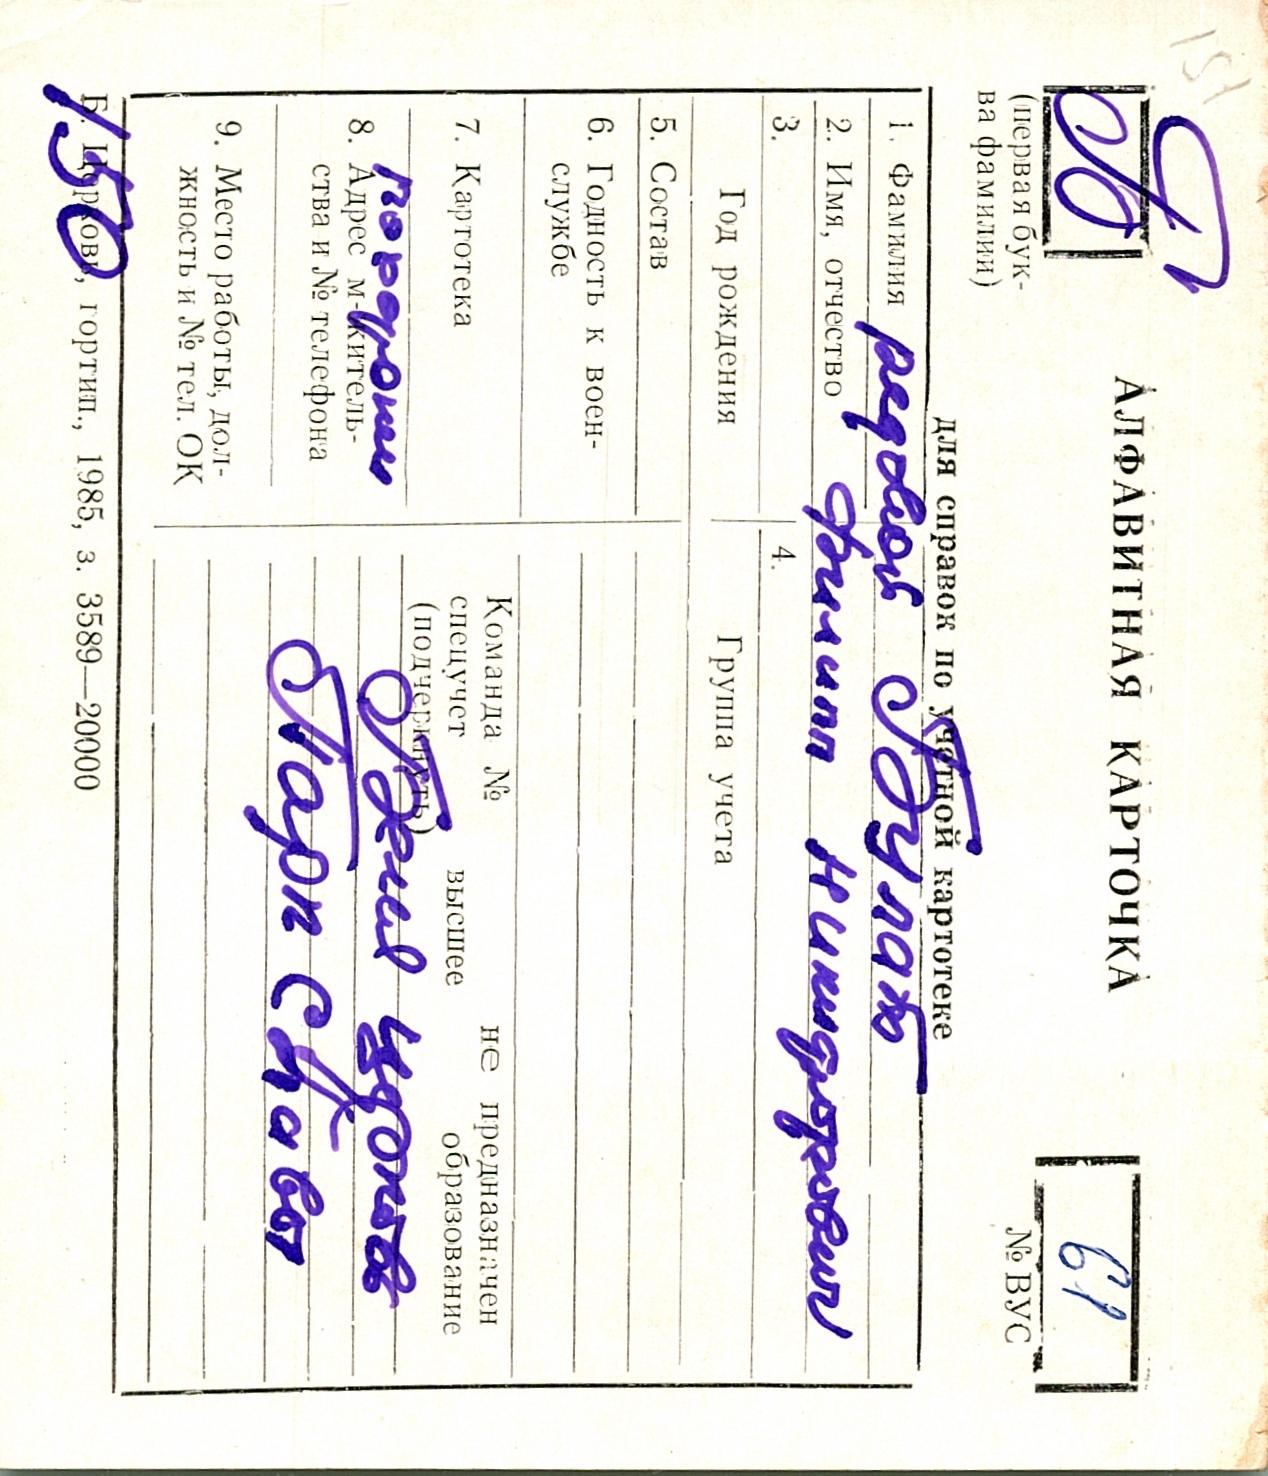 151
Б
АЛФАВИТНАЯ КАРТОЧКА
61
(первая бук-
ва фамилии)
№ ВУС
для справок по учетной картотеке
1. Фамилия рядовой Булат
2. Имя, отчество Филипп Никифорович
3.
4.
Год рождения
Группа учета
5. Состав
6. Годность к воен-
службе
7. Картотека
Команда № не предназначен
спецучет высшее образование
(подчеркнуть)
похоронен
8. Адрес м-жительь-
ства и № телефона
Парк Славы
9. Место работы, дол-
жность и № тел. ОК
Б. Церковь, гортип., 1985, з. 3589—20000
150